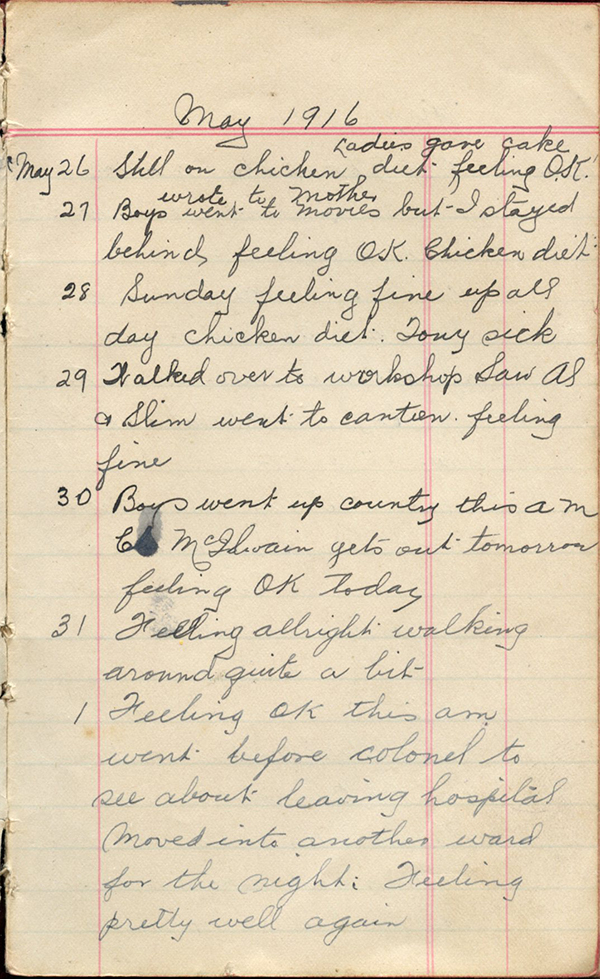 May 1916
Ladies gave cake
May 26 Still on chicken diet feeling O.K.
wrote to Mother
27 Boys went to movies but I stayed
behind, feeling O.K. Chicken diet
28 Sunday feeling fine up all
day chicken diet. Tony sick
29 Walked over to workshop Saw Al
& Slim went to canteen. feeling
fine
30 Boys went up country this a m
McIlwain gets out tomorrow
feeling OK today
31 Feeling allright walking
around quite a bit
1 Feeling OK this am
went before colonel to
see about leaving hospital
Moved into another ward
for the night: Feeling
pretty well again